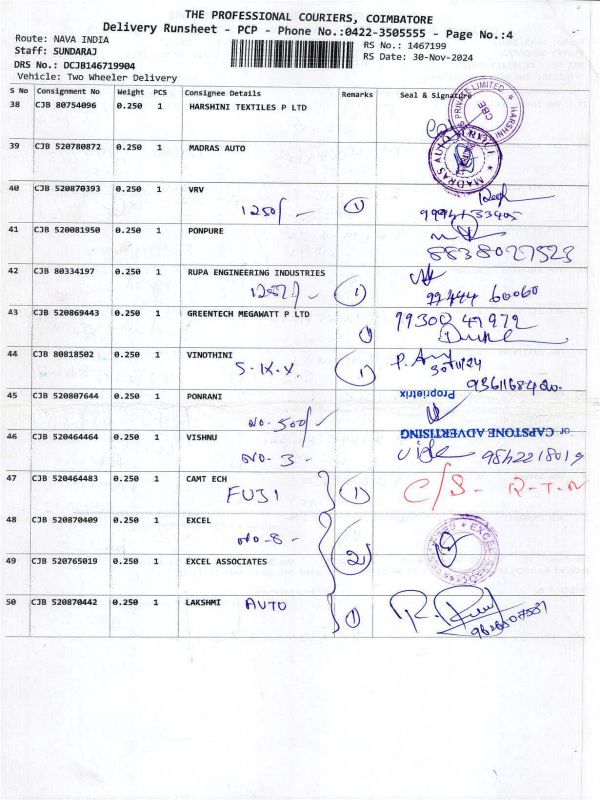 THE PROFESSIONAL COURIERS, COIMBATORE
Delivery Runsheet - PCP - Phone No.:0422-3505555 - Page No.:4
Route: NAVA INDIA
RS No.: 1467199
Staff: SUNDARAJ
RS Date: 30-Nov-2024
DRS No.: DCJB146719904
Vehicle: Two Wheeler Delivery
S No Consignment No Weight PCS Consignee Details Remarks Seal & Signature
38 CJB 80754096 0.250 1 HARSHINI TEXTILES P LTD
HARSHINI PRIVATE LIMITED CBE
39 CJB 520780872 0.250 1 MADRAS AUTO
MADRAS AUTO
40 CJB 520870393 0.250 1 VRV
1250/- 1
41 CJB 520081950 0.250 1 PONPURE
8838027523
42 CJB 80334197 0.250 1 RUPA ENGINEERING INDUSTRIES
1 99444 60060
43 CJB 520869443 0.250 1 GREENTECH MEGAWATT P LTD
1 99300 47972
44 CJB 80818502 0.250 1 VINOTHINI
S-IX-X 1 30/11/24
45 CJB 520807644 0.250 1 PONRANI
Proprietrix
NO-500/
46 CJB 520464464 0.250 1 VISHNU
CAPSTONE ADVERTISING
NO-3- 9842218019
47 CJB 520464483 0.250 1 CAMT ECH
FUJI 1 C/S- R-T-N
48 CJB 520870409 0.250 1 EXCEL
NO-8- 2
EXCEL
49 CJB 520765019 0.250 1 EXCEL ASSOCIATES
50 CJB 520870442 0.250 1 LAKSHMI AUTO
1